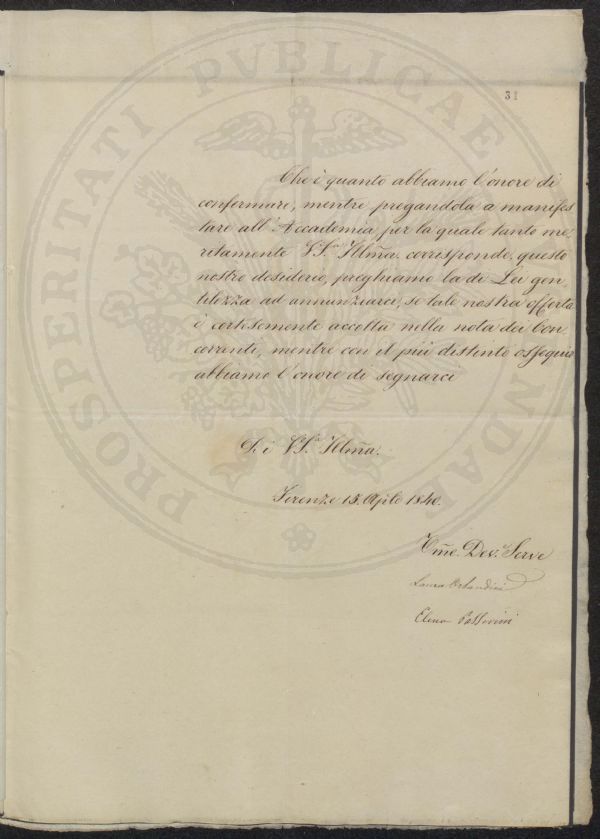 PROSPERITATI PUBLICAE AUGENDAE
31
Che è quanto abbiamo l'onore di
confermare, mentre pregandola a manifes
tare all'Accademia per la quale tanto me,
ritamente V.S.a Illm̃a. corrisponde, questo
nostro desiderio, preghiamo la di Lei gen,
tilezza ad annunziarci, se tale nostra offerta
è cortesemente accolta nella nota dei Con
correnti, mentre con il più distinto ossequio
abbiamo l'onore di segnarci
Di V.S.a Illm̃a.
Firenze 15. Aprile 1840.
Um̃e. Dev.e Serve
Laura Orlandini
Elena